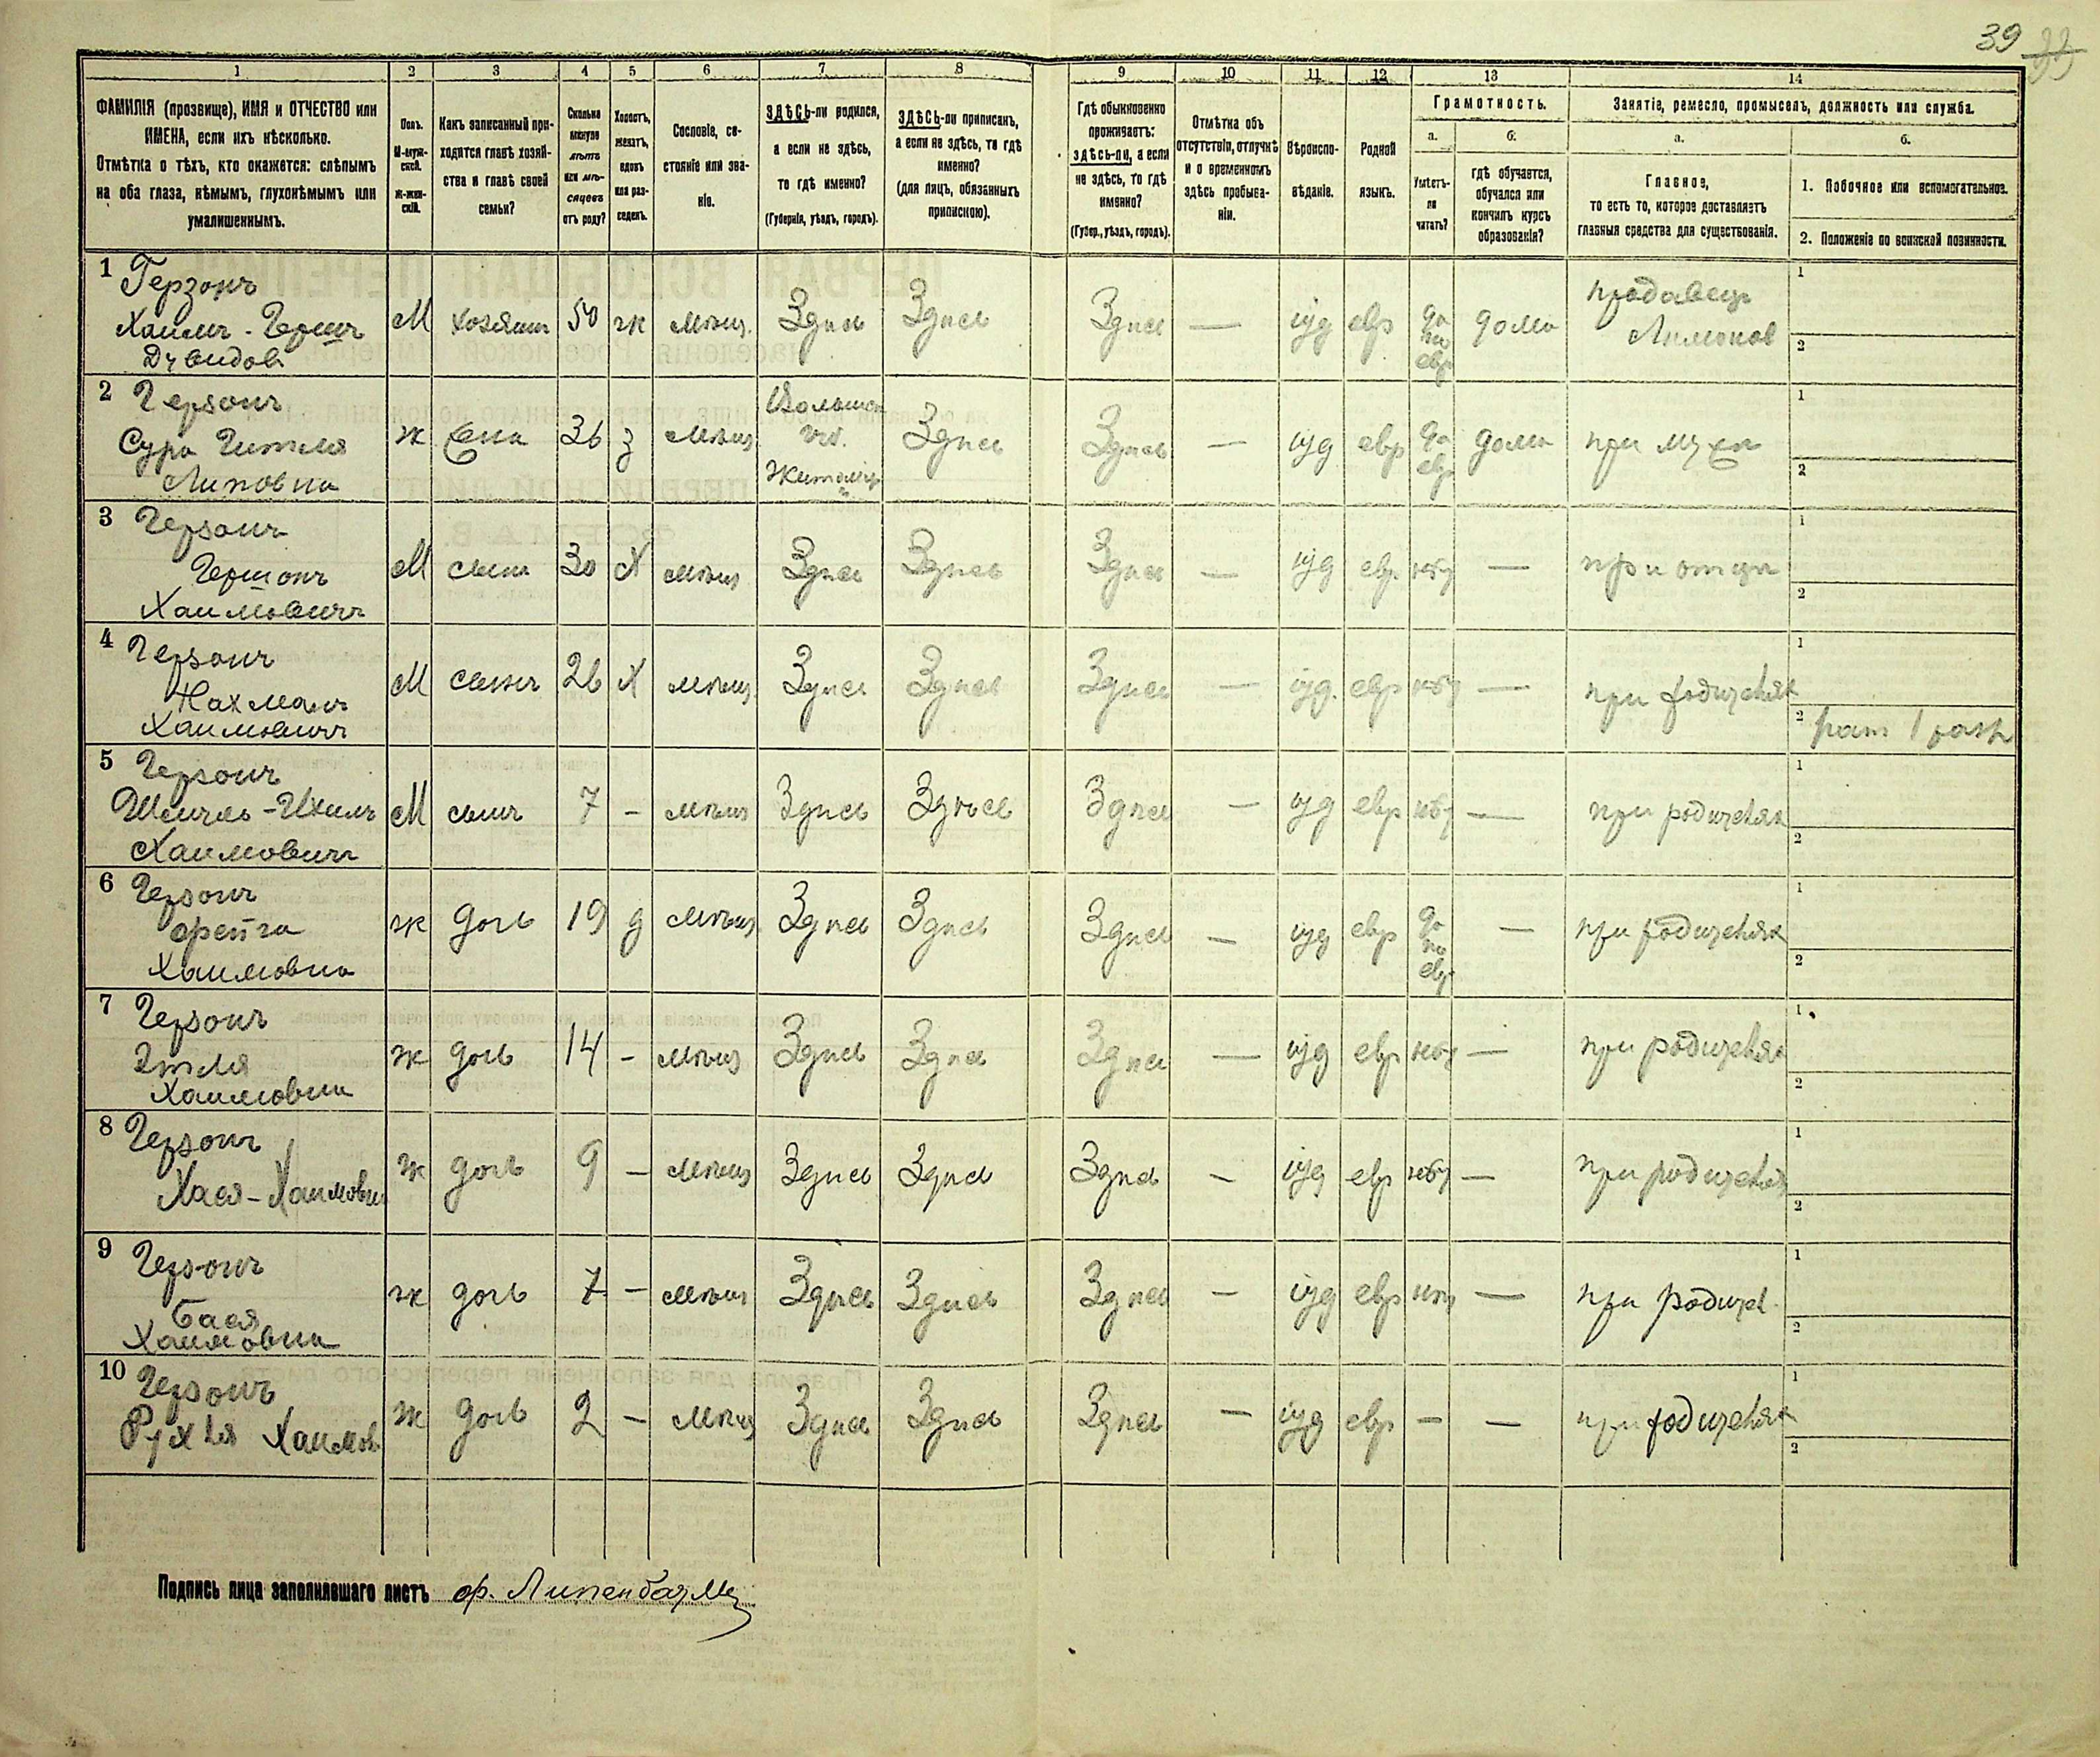 39 33
1 2 3 4 5 6 7 8 9 10 11 12 13 14
ФАМИЛІЯ (прозвище), ИМЯ и ОТЧЕСТВО или
ИМЕНА, если ихъ нѣсколько.
Отмѣтка о тѣхъ, кто окажется: слѣпымъ
на оба глаза, нѣмымъ, глухонѣмымъ или
умалишеннымъ.
Полъ.
М-муж-
ской.
ж-жен-
скій.
Какъ записанный при-
ходится главѣ хозяй-
ства и главѣ своей
семьи?
Сколько
минуло
лѣтъ
или мѣ-
сяцевъ
отъ роду?
Холостъ,
женатъ,
вдовъ
или раз-
веденъ.
Сословіе, со-
стояніе или зва-
ніе.
ЗДѢСЬ-ли родился,
а если не здѣсь,
то гдѣ именно?
(Губернія, уѣздъ, городъ).
ЗДѢСЬ-ли приписанъ,
а если не здѣсь, то гдѣ
именно?
(для лицъ, обязанныхъ
припискою).
Гдѣ обыкновенно
проживаетъ:
здѣсь-ли, а если
не здѣсь, то гдѣ
именно?
(Губер., уѣздъ, городъ).
Отмѣтка объ
отсутствіи, отлучкѣ
и о временномъ
здѣсь пребыва-
ніи.
Вѣроиспо-
вѣданіе.
Родной
языкъ.
Грамотность.
а.
Умѣетъ-
ли
читать?
б.
гдѣ обучается,
обучался или
кончилъ курсъ
образованія?
Занятіе, ремесло, промыселъ, должность или служба.
а.
Главное,
то есть то, которое доставляетъ
главныя средства для существованія.
б.
1. Побочное или вспомогательное.
2. Положеніе по воинской повинности.
1 Герзонъ
Хаимъ-Гершъ
Давидов
М хозяинъ 50 ж мѣщ. Здѣсь Здѣсь Здѣсь — іуд евр да по евр дома продавецъ Лимонов 1 2
2 Герзонъ
Сура Гитля
Липовна
ж жена 36 з мѣщ Волынск. губ. Житомир Здѣсь Здѣсь — іуд евр да евр дома при мужѣ 1 2
3 Герзонъ
Гершонъ
Хаимовичъ
М сынъ 30 Х мѣщ Здѣсь Здѣсь Здѣсь — іуд евр нѣт — при отцѣ 1 2
4 Герзонъ
Нахманъ
Хаимовичъ
М сынъ 26 Х мѣщ Здѣсь Здѣсь Здѣсь — іуд. евр нѣт — при родителях 1 2 рат 1 разр
5 Герзонъ
Хаимовичъ
М сынъ 7 – мѣщ Здѣсь Здѣсь Здѣсь — іуд евр нѣт — при родителях 1 2
6 Герзонъ
Фейга
Хаимовна
ж дочь 19 д мѣщ Здѣсь Здѣсь Здѣсь — іуд евр да по евр — при родителях 1 2
7 Герзонъ
Этля
Хаимовна
ж дочь 14 – мѣщ Здѣсь Здѣсь Здѣсь — іуд евр нѣт — при родителях 1 2
8 Герзонъ
Хася-Хаимовн
ж дочь 9 – мѣщ Здѣсь Здѣсь Здѣсь — іуд евр нѣт — при родителях 1 2
9 Герзонъ
Бася
Хаимовна
ж дочь 7 – мѣщ Здѣсь Здѣсь Здѣсь — іуд евр нѣт — при родител. 1 2
10 Герзонъ
Рухля Хаимов
ж дочь 2 – мѣщ Здѣсь Здѣсь Здѣсь — іуд евр – — при родителях 1 2
Подпись лица заполнившаго листъ